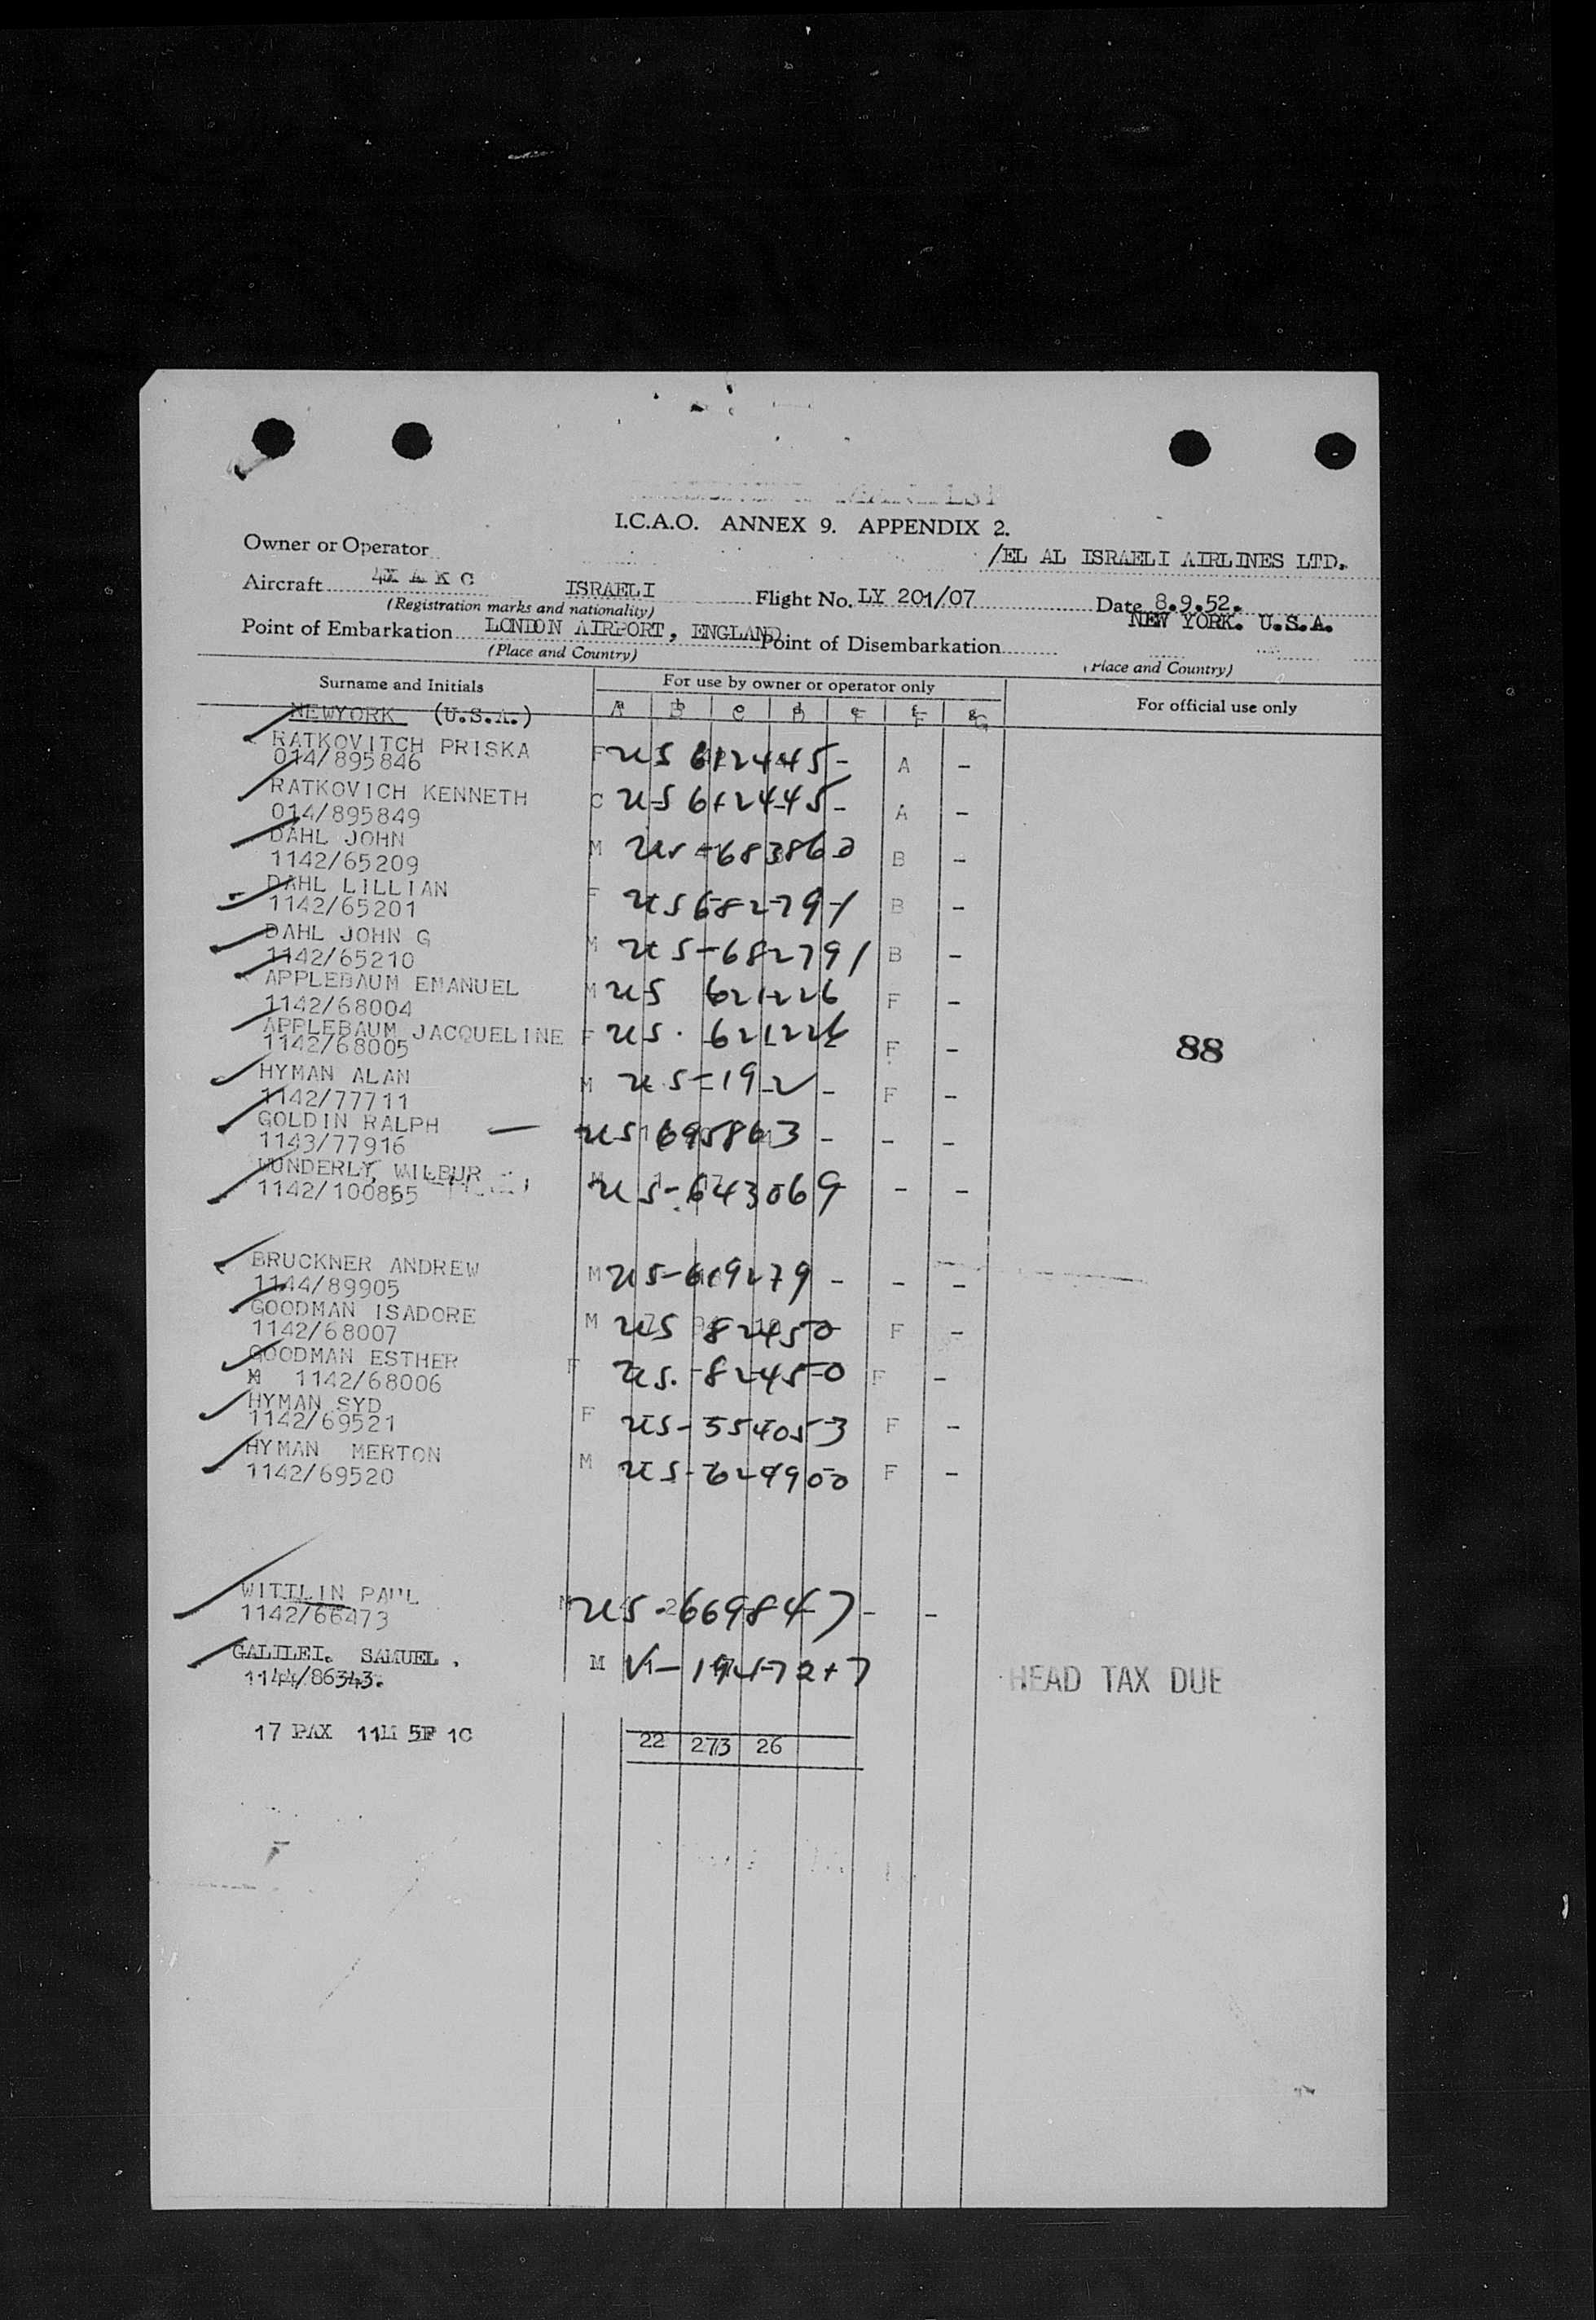 I.C.A.O. ANNEX 9. APPENDIX 2.
Owner or Operator /EL AL ISRAELI AIRLINES LTD.
Aircraft 4X A K C ISRAELI Flight No. LY 201/07 Date 8.9.52.
(Registration marks and nationality)
NEW YORK. U.S.A.
Point of Embarkation LONDON AIRPORT, ENGLAND Point of Disembarkation
(Place and Country) (Place and Country)
Surname and Initials For use by owner or operator only For official use only
A B C D E F G
NEWYORK (U.S.A.)
RATKOVITCH PRISKA
014/895846 F US 612445- A -
RATKOVICH KENNETH
014/895849 C US 612445- A -
DAHL JOHN
1142/65209 M US-683860 B -
DAHL LILLIAN
1142/65201 F US 682791 B -
DAHL JOHN G
1142/65210 M US-682791 B -
APPLEBAUM EMANUEL
1142/68004 M US 621226 F -
APPLEBAUM JACQUELINE
1142/68005 F US. 621226 F -
88
HYMAN ALAN
1142/77711 M US-192 - F -
GOLDIN RALPH —
1143/77916 US 695863 - - -
WUNDERLY, WILBUR
1142/100865 M US-643069 - -
BRUCKNER ANDREW
1144/89905 M US-609279 - - -
GOODMAN ISADORE
1142/68007 M US 82450 F -
GOODMAN ESTHER
M 1142/68006 F US.-82450 F -
HYMAN SYD
1142/69521 F US-554053 F -
HYMAN MERTON
1142/69520 M US-629900 F -
WITTLIN PAUL
1142/66473 M US-669847 - -
GALILEI. SAMUEL .
1144/86343. M V-
HEAD TAX DUE
17 PAX 11M 5F 1C 22 273 26